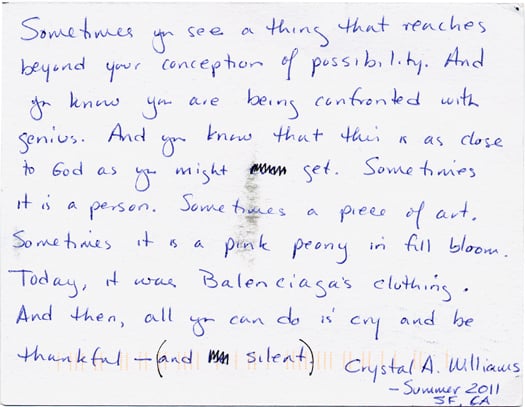 Sometimes you see a thing that reaches
beyond your conception of possibility. And
you know you are being confronted with
genius. And you know that this is as close
to God as you might get. Sometimes
it is a person. Sometimes a piece of art.
Sometimes it is a pink peony in full bloom.
Today, it was Balenciaga's clothing.
And then, all you can do is cry and be
thankful – (and silent)
Crystal A. Williams
– Summer 2011
SF, CA